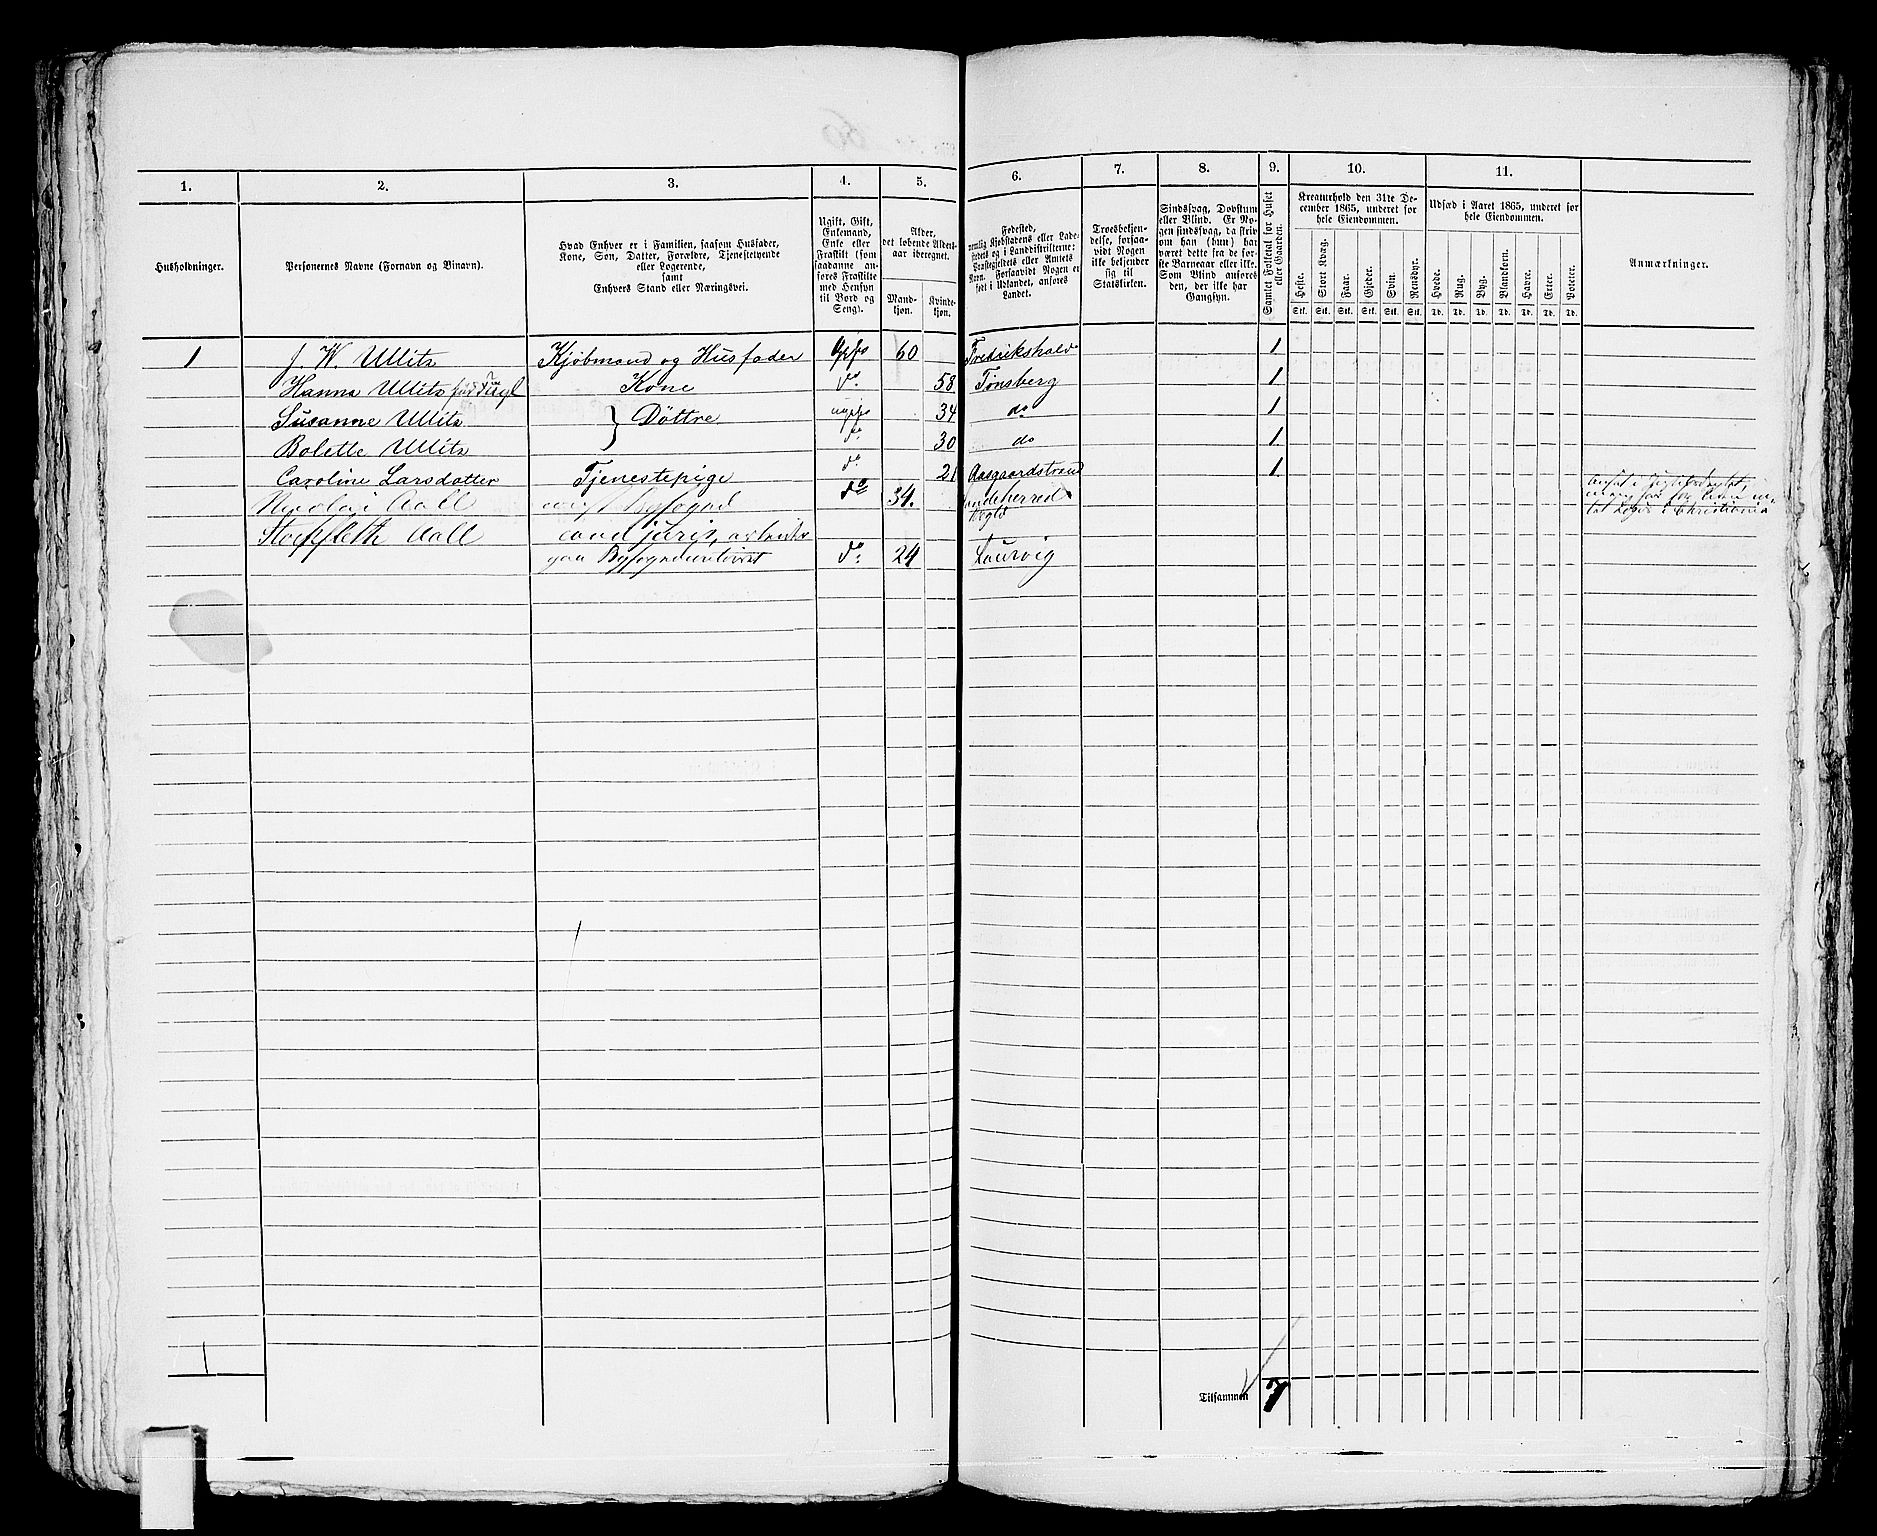 1. 2. 3. 4. 5. 6. 7. 8. 9. 10. 11.
Husholdninger.
Personernes Navne (Fornavn og Binavn).
Hvad Enhver er i Familien, saasom Husfader,
Kone, Søn, Datter, Forældre, Tjenestetyende
eller Logerende,
samt
Enhvers Stand eller Næringsvei.
Ugift, Gift,
Enkemand,
Enke eller
Fraskilt (som
saadanne an-
føres Fraskilte
med Hensyn
til Bord og
Seng).
Alder,
det løbende Alders-
aar iberegnet.
Mand-
kjøn.
Kvinde-
kjøn.
Fødested,
nemlig Kjøbstadens eller Lade-
stedets og i Landdistrikterne:
Præstegjeldets eller Amtets
Navn. Forsaavidt Nogen er
født i Udlandet, anføres
Landet.
Troesbekjen-
delse, forsaa-
vidt Nogen
ikke bekjender
sig til
Statskirken.
Sindssvag, Døvstum
eller Blind. Er No-
gen sindssvag, da skriv
om han (hun) har
været dette fra de før-
ste Barneaar eller ikke.
Som Blind anføres
den, der ikke har
Gangsyn.
Samlet Folketal for Huset
eller Gaarden.
Kreaturhold den 31te De-
cember 1865, underet for
hele Eiendommen.
Heste. Stort Kvæg. Faar. Gjeder. Svin. Rensdyr.
Stk. Stk. Stk. Stk. Stk. Stk.
Udsæd i Aaret 1865, underet for
hele Eiendommen.
Hvede. Rug. Byg. Blandkorn. Havre. Erter. Poteter.
Td. Td. Td. Td. Td. Td. Td.
Anmærkninger.
1 J. W. Ullitz Kjøbmand og Husfader Gift 60 Fredrikshald 1
Hanna Ullitz Kone do. 58 Tønsberg 1
Susanne Ullitz } Døttre ugift 34 do 1
Bolette Ullitz do. 30 do 1
Caroline Larsdatter Tjenestepige do. 21 Aasgaardstrand 1
Nicolai Aall Byfogd do 34.
Stoffleth Aall cand juris,
paa do. 24 Laurvig
1
Tilsammen 7